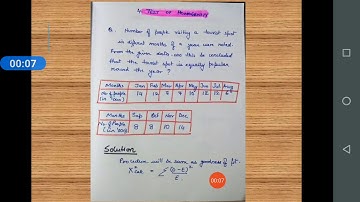 00:07
4. TEST OF HOMOGENEITY
Q. Number of people visiting a tourist spot
in different months of a year were noted.
From the given data can this be concluded
that the tourist spot is equally popular
round the year ?
Months Jan Feb Mar Apr May Jun Jul Aug
No of people
(in '000)
Months Sep Oct Nov Dec
No of People 8 8 10 14
(in '000)
Solution
Procedure will be same as goodness of fit.
X² cal = Σ (O-E)²
E
00:07